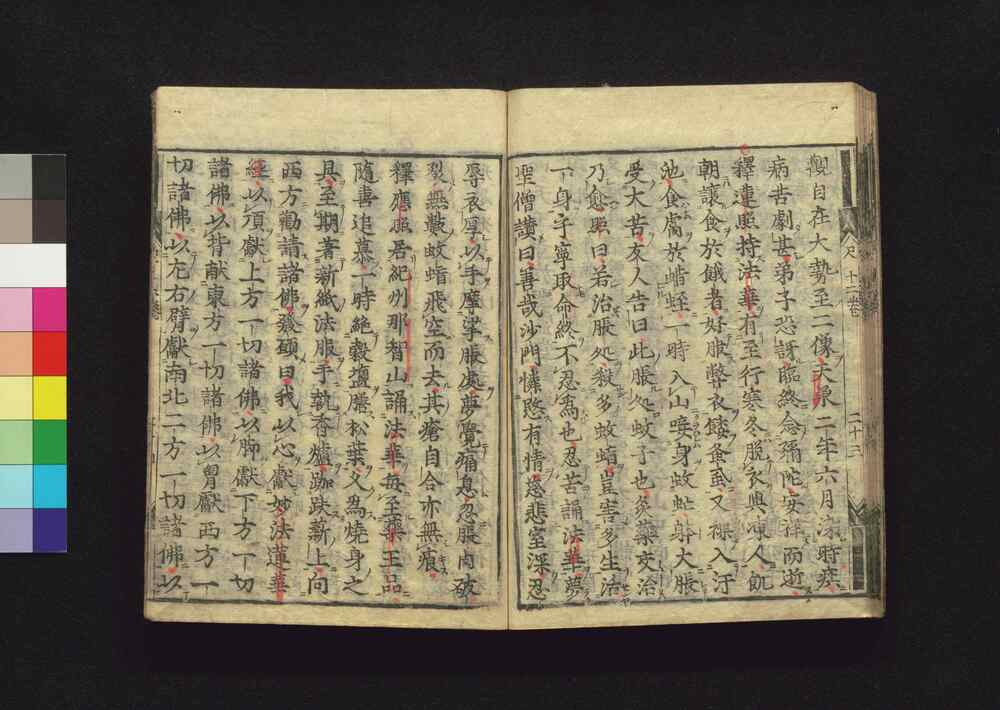 觀自在大勢至二像天祿二年六月沴時疾
病苦劇甚弟子恐訝臨終念彌陀安祥而逝
釋蓮照持法華有至行寒冬脫衣與凍人飢
朝讓食於餓者好服弊衣餧蚤虱又裸入汙
池食腐於蛭一時入山唼身蚊虻身大脹
受大苦友人告曰此脹処蚊子也灸藥交治
乃愈照曰若治脹処殺多蚊豈害多生活
一身乎寧取命終不忍為也忍苦誦法華夢
聖僧讚曰善哉沙門憐愍有情慈悲室深忍
辱衣厚以手摩脹處夢覺痛息忍脹肉破
裂無數蚊飛空而去其瘡自合亦無痕
釋應照居紀州那智山誦法華每至藥王品
隨喜追慕一時絕穀鹽膳松葉又為燒身之
具至期著新紙法服手執香爐跏趺薪上向
西方勸請諸佛發頌曰我以心獻妙法蓮華
經以頂獻上方一切諸佛以脚獻下方一切
諸佛以背献東方一切諸佛以胷獻西方一
切諸佛以左右臂獻南北二方一切諸佛以
十二卷
二十三